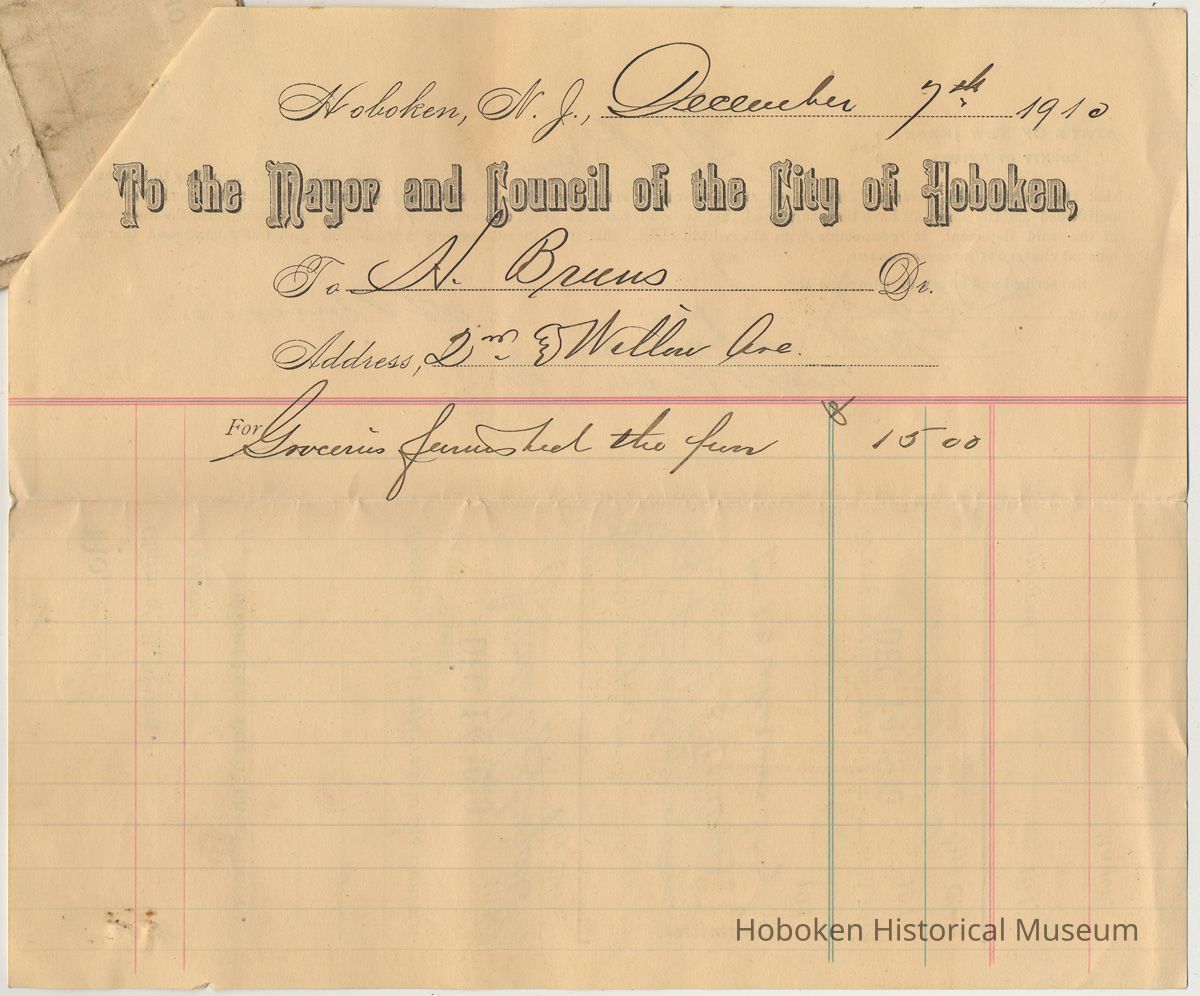 Hoboken, N. J., December 7th 1910
To the Mayor and Council of the City of Hoboken,
To H. Bruns Dr.
Address, 2nd & Willow Ave.
For Groceries furnished the $ 15 00
Hoboken Historical Museum